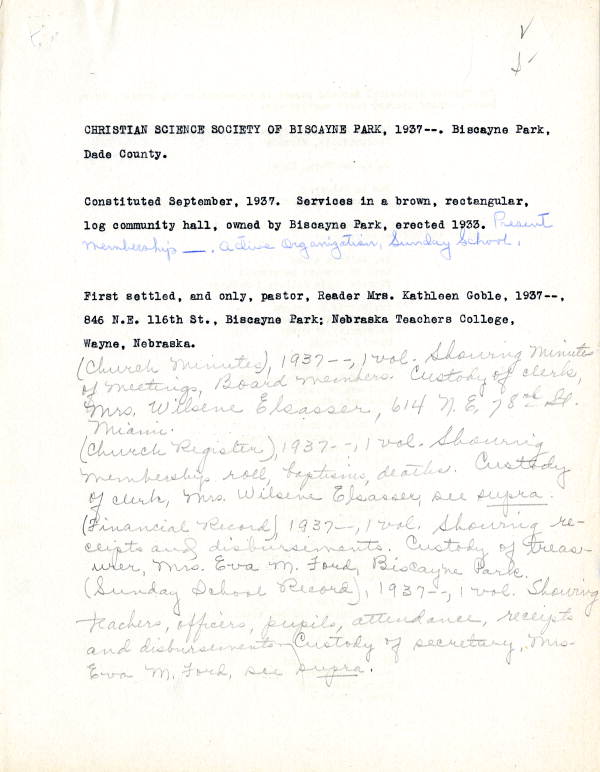 CHRISTIAN SCIENCE SOCIETY OF BISCAYNE PARK, 1937--. Biscayne Park,
Dade County.
Constituted September, 1937. Services in a brown, rectangular,
log community hall, owned by Biscayne Park, erected 1933. Present
membership —. Active Organization, Sunday School.
First settled, and only, pastor, Reader Mrs. Kathleen Goble, 1937--,
846 N.E. 116th St., Biscayne Park; Nebraska Teachers College,
Wayne, Nebraska.
(Church Minutes), 1937--, 1 vol. Showing minutes
of meetings, Board members. Custody of clerk,
Mrs. Wilsene Elsasser, 614 N.E. 78th St.
Miami.
(Church Register), 1937--, 1 vol. Showing
membership roll, baptisms, deaths. Custody
of clerk, Mrs. Wilsene Elsasser, see supra.
(Financial Record), 1937--, 1 vol. Showing re-
ceipts and disbursements. Custody of treas-
urer, Mrs. Eva M. Ford, Biscayne Park.
(Sunday School Record), 1937--, 1 vol. Showing
teachers, officers, pupils, attendance, receipts
and disbursements. Custody of secretary, Mrs.
Eva M. Ford, see supra.